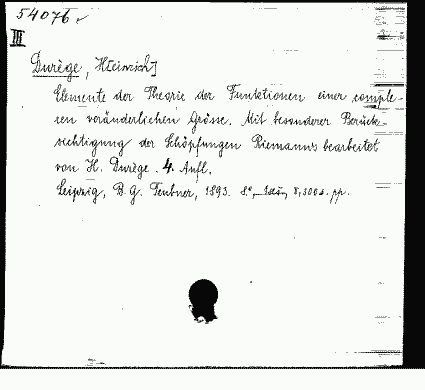 54076
III
Durège, H[einrich]
Elemente der Theorie der Funktionen einer comple-
xen veränderlichen Grösse. Mit besonderer Berück-
sichtigung der Schöpfungen Riemanns bearbeitet
von H. Durège. 4. Aufl.
Leipzig, B. G. Teubner, 1893. 8°, 300 s. pp.